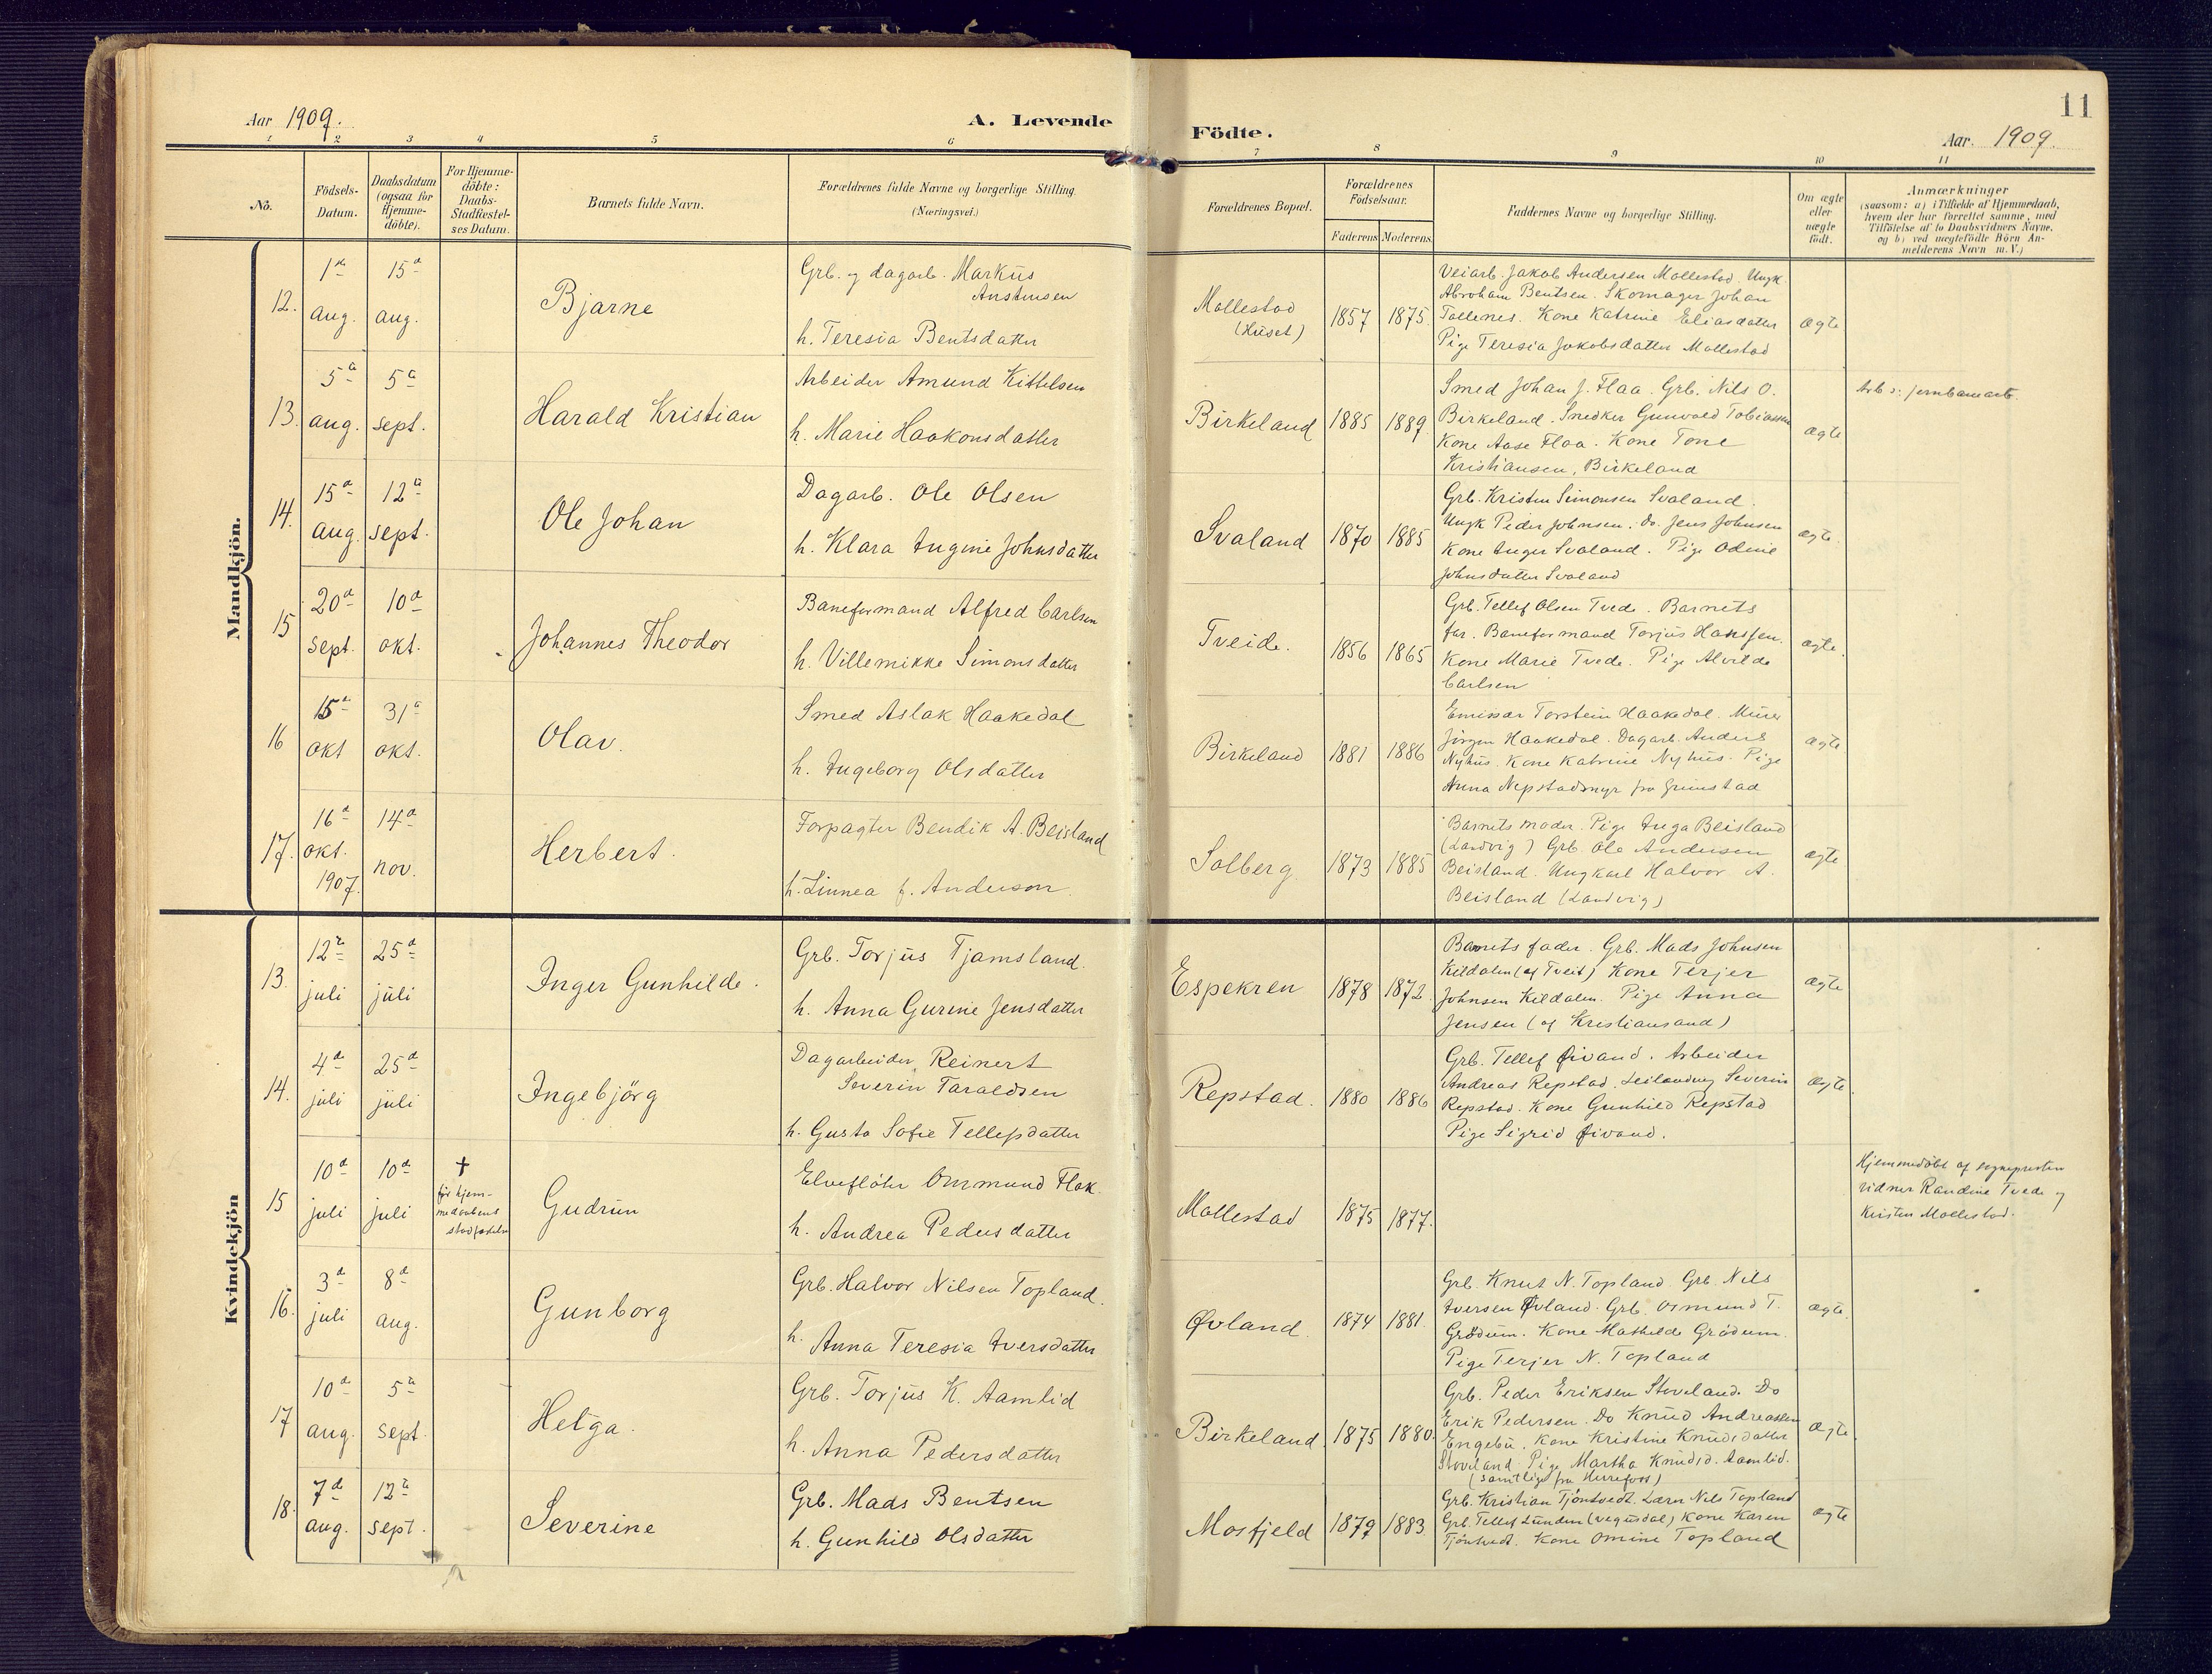 11
Aar 1909.
A. Levende
Födte.
Aar. 1909.
1 2 3 4 5 6 7 8 9 10 11
No.
Födsels-
Datum.
Daabsdatum
(ogsaa for
Hjemme-
döbte).
For Hjemme-
döbte:
Daabs-
Stadfæstel-
ses Datum.
Barnets fulde Navn.
Forældrenes fulde Navne og borgerlige Stilling.
(Næringsvei.)
Forældrenes Bopæl.
Forældrenes
Födselsaar.
Faderens
Moderens.
Faddernes Navne og borgerlige Stilling.
Om ægte
eller
uægte
født.
Anmærkninger
(saasom: a) i Tilfælde af Hjemmedaab,
hvem der har forrettet samme, med
Tilföielse af to Daabsvidners Navne.
og b) ved uægtefödte Börn An-
melderens Navn m.V.)
Mandkjön.
12.
1ste
aug.
15d
aug.
Bjarne
Grb. og dagarb. Markus
Anstensen
h. Teresia Bentsdatter
Mollestad
(Huset)
1857
1875.
Veiarb. Jakob Andersen Mollestad. Ungk
Abraham Bentsen. Skomager Johan
Tallenes. Kone Katrine Eliasdatter
Pige Teresia Jakobsdatter Mollestad
ægte
13.
5te
aug.
5te
sept.
Harald Kristian
Arbeider Amund Kittelsen
h. Marie Haakonsdatter
Birkeland
1885
1889
Smed Johan J. Flaa. Grb. Nils O.
Birkeland. Snedker Gunvald Tobiassen
Kone Aase Flaa. Kone Tone
Kristiansen, Birkeland
ægte
Arb v. jernbanearb.
14.
15d
aug.
12te
sept.
Ole Johan
Dagarb. Ole Olsen
h. Klara Eugenie Johnsdatter
Svaland
1870
1885
Grb. Kristen Simonsen Svaland.
Ungk Peder Johnsen. Do. Jens Johnsen
Kone Inger Svaland. Pige Odine
Johnsdatter Svaland
ægte.
15
20d
sept.
10d
okt.
Johannes Theodor
Baneformand Alfred Carlsen
h. Villemikke Simonsdatter
Tveide.
1856
1865
Grb. Tellef Olsen Tvede. Barnets
far. Baneformand Torjus Hanssen.
Kone Marie Tvede. Pige Alvilde
Carlsen
ægte.
16
15d
okt
31te
okt.
Olav.
Smed Aslak Haakedal
h. Ingeborg Olsdatter
Birkeland
1881
1886
Emissær Torstein Haakedal. Murer
Jörgen Haakedal. Dagarb. Anders
Nyhus. Kone Katrine Nyhus. Pige
Anna Nepstadmyr fra Grimstad
ægte
17.
16d
okt.
1907.
14d
nov.
Herbert.
Forpagter Bendik A. Beisland
h. Linnea f. Anderson.
Solberg.
1873
1885
Barnets moder. Pige Inga Beisland
(Landvig) Grb. Ole Andersen
Beisland. Ungkarl Halvor A.
Beisland (Landvig)
ægte
Kvindekjön
13.
12te
juli
25d
juli
Inger Gunhilde.
Grb. Torjus Tjamsland.
h. Anna Gurine Jensdatter
Espekren
1878
1872.
Barnets fader. Grb. Mads Johnsen
Kildalen (af Tveit) Kone Terjer
Johnsen Kildalen. Pige Anna
Jensen (af Kristiansand)
ægte
14.
4d
juli
25d
juli
Ingebjörg
Dagarbeider Reinert
Severin Taraldsen
h. Gusta Sofie Tellefsdatter
Repstad.
1880
1886
Grb. Tellef Øivand. Arbeider
Andreas Repstad. Leilænding Severin
Repstad. Kone Gunhild Repstad
Pige Sigrid Øivand.
ægte.
15
10d
juli
10d
juli
†
för hjem-
medaabens
stadfæstelse
Gudrun
Elveflöter Ommund Flak.
h. Andrea Pedersdatter
Mollestad
1875
1877.
Hjemmedöbt af sognepresten
vidner Randine Tvede og
Kirsten Mollestad.
16.
3d
juli
8d
aug.
Gunborg
Grb. Halvor Nilsen Topland.
h. Anna Teresia Iversdatter
Øvland.
1874
1881.
Grb. Knut N. Topland. Grb. Nils
Iversen Øvland. Grb. Osmund T.
Grödum. Kone Mathilde Grödum.
Pige Terjer N. Topland
ægte.
17
10d
aug.
5te
sept.
Helga.
Grb. Torjus K. Aamlid
h. Anna Pedersdatter
Birkeland.
1875
1880.
Grb. Peder Eriksen Stoveland. Do
Erik Pedersen. Do Knud Andreassen
Engebu. Kone Kristine Knudsdatter
Stoveland. Pige Martha Knudsd. Aamlid.
(samtlige fra Herrefoss)
ægte.
18.
7de
aug.
12te
sept.
Severine
Grb. Mads Bentsen
h. Gunhild Olsdatter
Mosfjeld
1879
1883.
Grb. Kristian Tjöntvedt. Lærer Nils Topland
Grb Tellef Lunden (Vegusdal) Kone Karen
Tjöntvedt. Kone Omine Topland
ægte